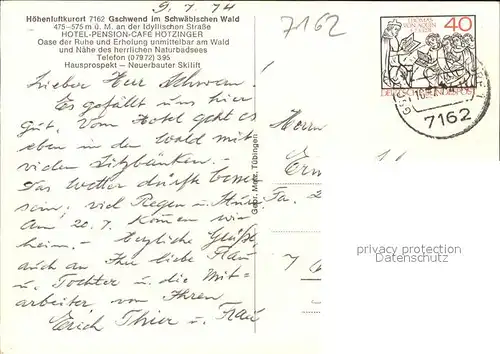 9.7.74
Höhenluftkurort 7162 Gschwend im Schwäbischen Wald
475–575 m ü. M. an der Idyllischen Straße
HOTEL-PENSION-CAFÉ HÖTZINGER
Oase der Ruhe und Erholung unmittelbar am Wald
und Nähe des herrlichen Naturbadsees
Telefon (07972) 395
Hausprospekt — Neuerbauter Skilift
7162
THOMAS
VON AQUIN
40
DEUTSCHE BUNDESPOST
7162
Lieber Herr
Es gefällt uns hier
gut. Vom Hotel geht es
eben in den Wald mit
vielen Sitzbänken.
Das Wetter dürfte besser
sein, viel Regen u.
Am 20.7. kommen wir
heim. Herzliche Grüße
auch an Ihre liebe Frau
u. Tochter u. die Mit-
arbeiter von Ihren
Erich Thier u. Frau
Gebr. Metz, Tübingen
Herrn
Fa.
7
privacy protection
AnsichtskartenPool